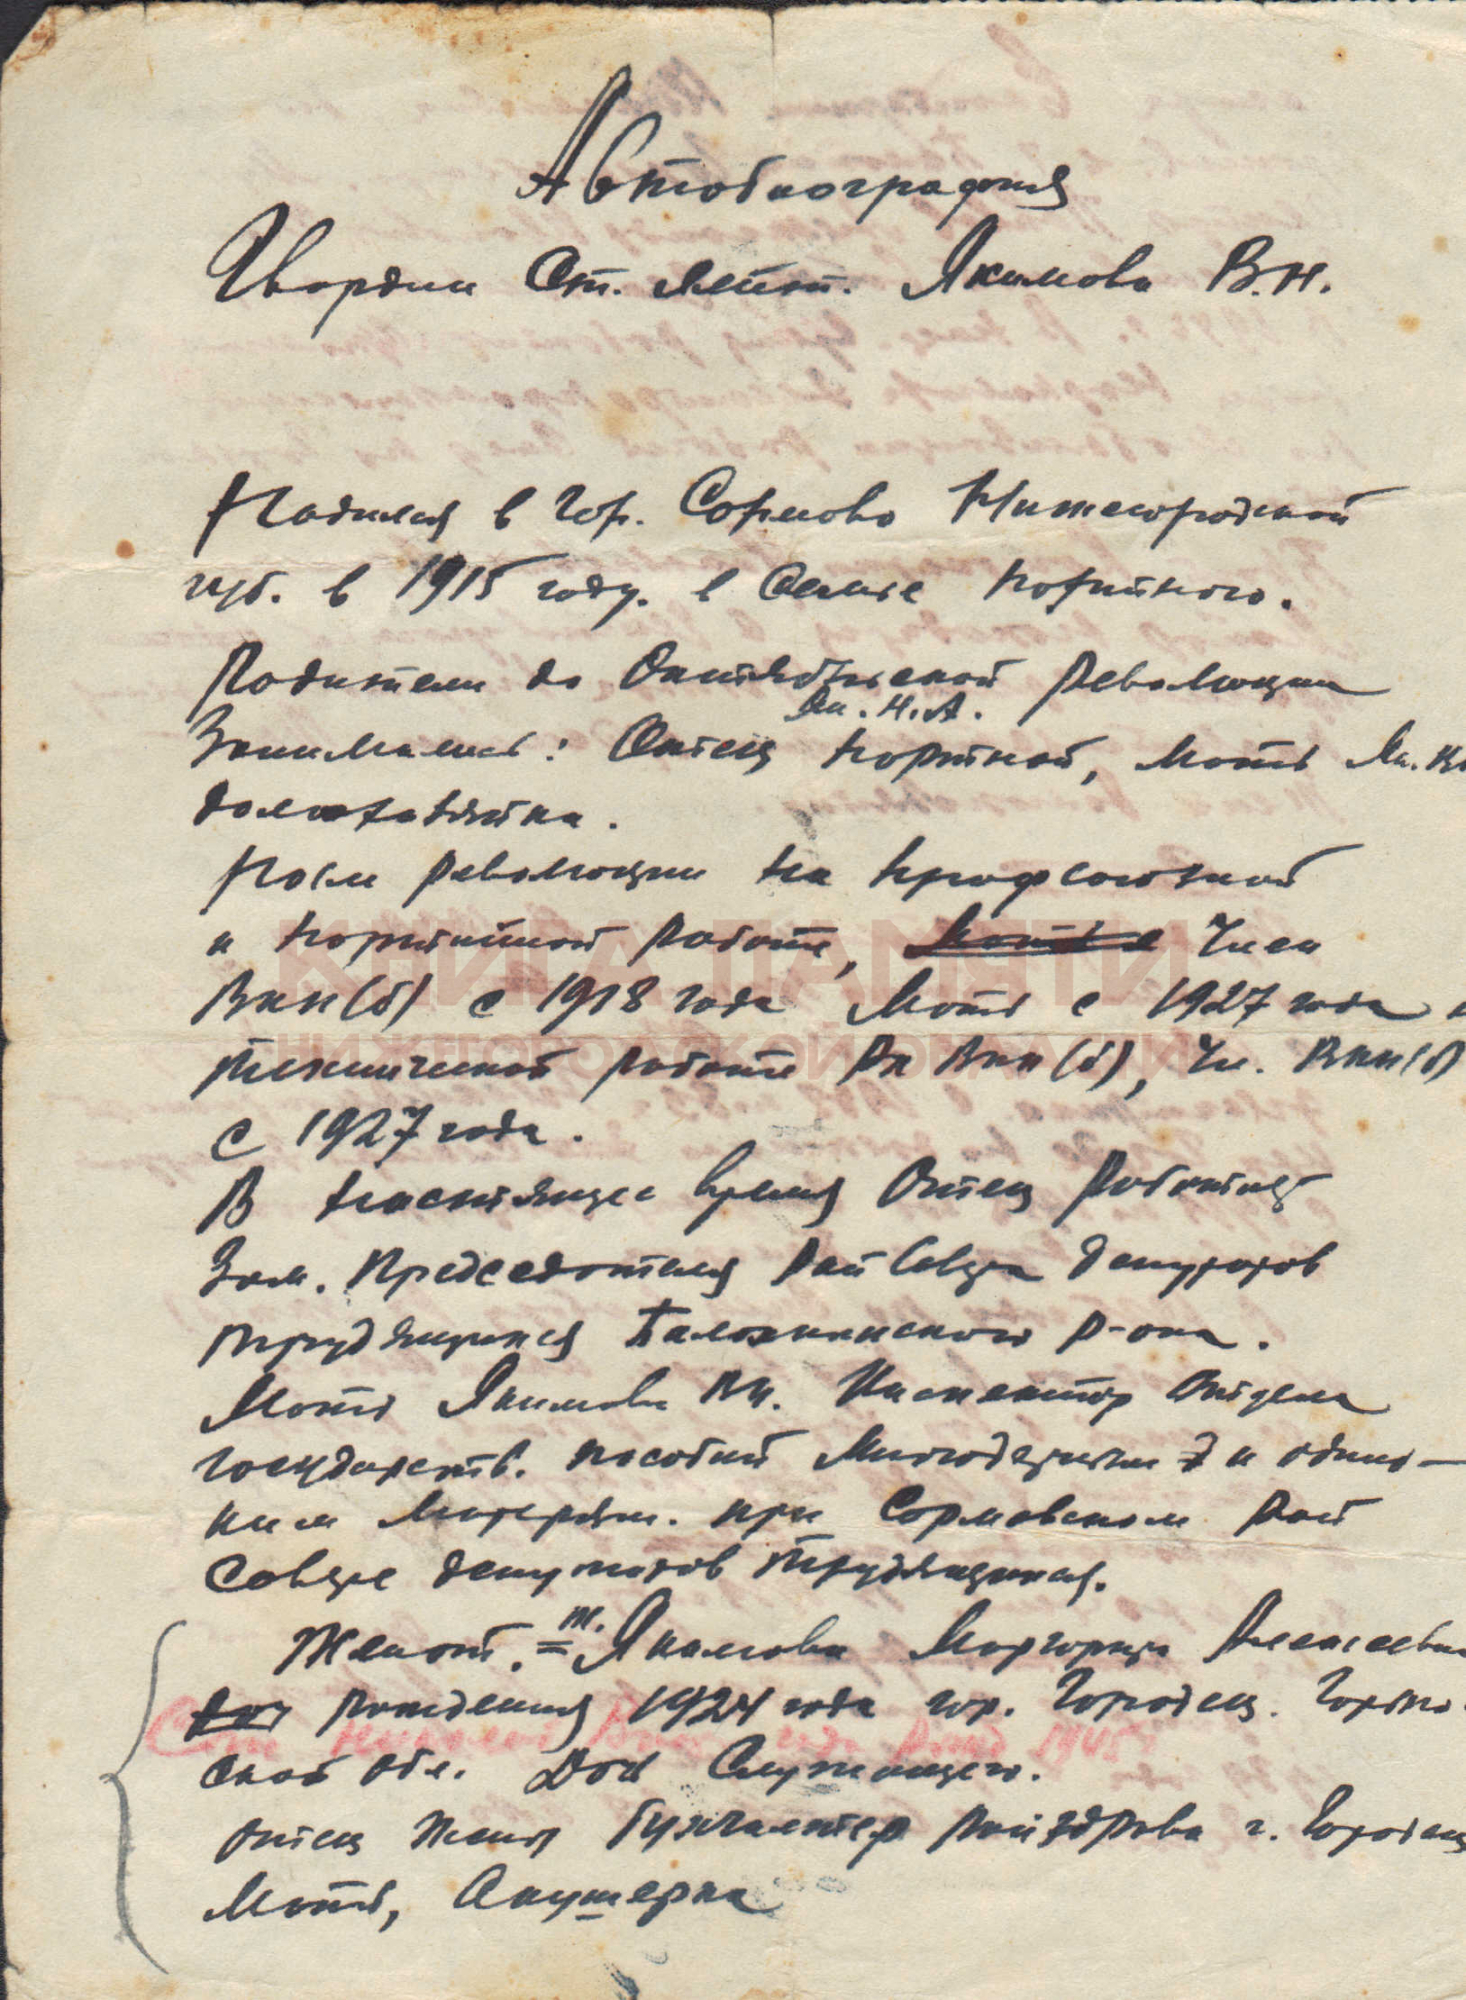 Автобиография
Гвардии Ст. лейт. Якимова В.Н.
Родился в гор. Сормово Нижегородской
губ. в 1915 году. в семье портного.
Родители до Октябрьской Революции
Як. Н.А.
Занимались: Отец портной, мать Як.
домохозяйка.
После революции на профсоюзной
и партийной работе, Член
ВКП(б) с 1918 года Мать с 1927 года
технической работе РК ВКП(б), Чл. ВКП(б)
с 1927 года.
В настоящее время Отец Работает
Зам. Председателя Рай Совета депутатов
трудящихся Балахнинского р-она.
Мать Якимова Инспектор Отдела
государств. пособий Многодетным и одино-
ким Матерям. при Сормовском Рай
Совете депутатов трудящихся.
Женат. = т. Якимова Маргарита Алексеевна
рождения 1924 года гор. Городец. Горьков
Сын Николай рожд 1945
ской обл. Дочь Служащего.
Отец жены бухгалтер Райздрава г. Городец
Мать, Акушерка
КНИГА ПАМЯТИ
НИЖЕГОРОДСКОЙ ОБЛАСТИ